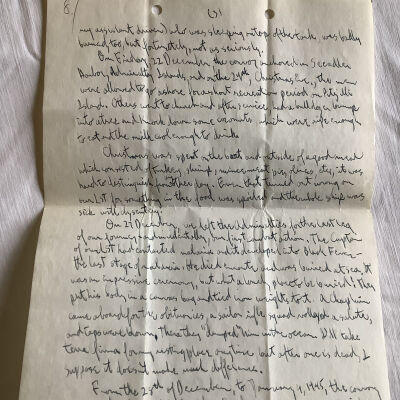 8/
my assistant driver) who was sleeping on top of the tank, was badly
burned too, but fortunately, not as seriously.
On Friday, 22 December the convoy anchored in Seeadler
Harbor, Admiralty Islands, and on the 24th, Christmas Eve, the men
were allowed to go ashore for a short recreation period on
Island. Others went to church and after service, had a bulldozer bump
into a tree and knock down some coconuts which were ripe enough
to eat and the milk cool enough to drink.
Christmas was spent on the boat and outside of a good meal
which consisted of turkey, shrimp, mince meat pie, olives, etc., it was
hard to distinguish from other days. Even that turned out wrong on
our lst for something in the food was spoiled and the whole ship was
sick with dysentery.
On 27 December, we left the Admiralties for the last leg
of our journey and immediately, our first
of our lst had contracted malaria and it developed into Black Fever -
the last stage of malaria. He died enroute and was buried at sea. It
was an impressive ceremony, but what a lonely place to be buried! They
put his body in a canvas bag and tied iron weights to it. A chaplain
came aboard for the obituaries, a sailor rifle squad volleyed a salute,
and taps were blown, then they "dumped" him in the ocean. I'll take
terra firma for my resting place anytime but after one is dead, I
suppose it doesn't make much difference.
From the 28th of December, to January 9, 1945, the convoy